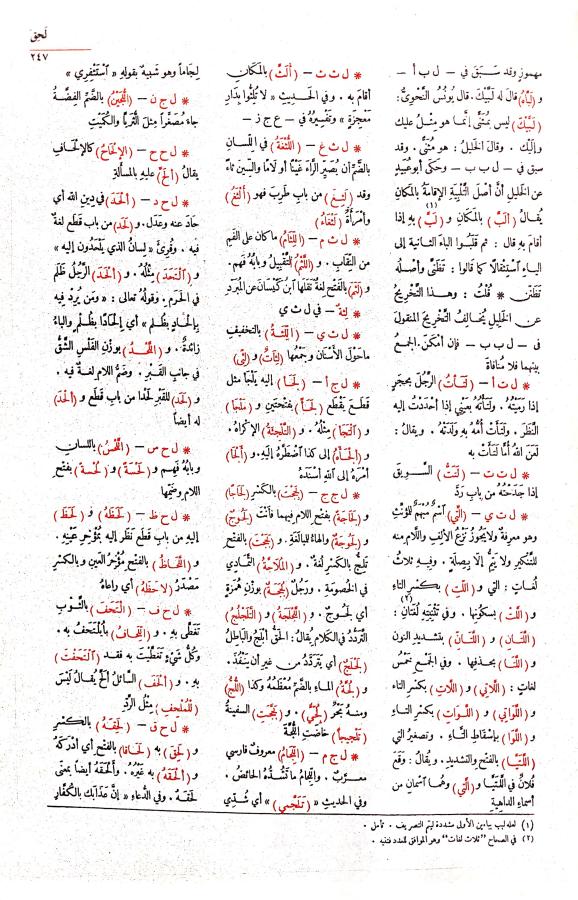 لَحِقَ
٢٤٧
مهموز وقد سَبَقَ في — ل ب أ —
و (لَبَّاهُ) قال له لَبَّيْكَ . قال يُونُسُ النَّحْوِيُّ:
(لَبَّيْكَ) ليس بمُثَنًّى إِنَّمَا هو مِثْلُ عليك
وإِلَيْكَ . وقالَ الخَليلُ : هو مُثَنًّى . وقد
سبق في — ل ب ب — وحَكَى أبو عُبَيْدٍ
عن الخليلِ أَنَّ أَصْلَ التَّلْبِيَةِ الإِقَامَةُ بالمَكَانِ
يُقَالُ (أَلَبَّ) بالمَكَانِ و (لَبَّ) (١) بِهِ إِذا
أقامَ بهِ قال : ثم قَلَبُوا الباءَ الثانيةَ إلى
الياءِ اسْتِثْقَالًا كما قالوا : تَظَنَّى وأَصْلُهُ
تَظَنَّنَ * قُلْتُ : وهـذا التَّخْرِيجُ
عن الخَليلِ يُخَالِفُ التَّخْرِيجَ المنقولَ
في — ل ب ب — فإن أمْكَنَ الجمعُ
بينهما فلا مُنَافَاةَ
* ل ت أ — (لَتَأْتُ) الرَّجُلَ بحَجَرٍ
إذا رَمَيْتَهُ . ولَتَأْتُهُ بعَيْنِي إذا أَحْدَدْتَ إليه
النَّظَرَ . ولَتَأَتْ أُمُّهُ بهِ وَلَدَتْهُ . ويقالُ :
لَعَنَ اللهُ أُمًّا لَتَأَتْ به
* ل ت ت — (لَتَّ) السَّوِيقَ
إذا جَدَحْتَهُ من باب رَدَّ
* ل ت ي — (الَّتِي) اسْمٌ مُبْهَمٌ للمُؤَنَّثِ
وهو معرفةٌ ولا يجوزُ نَزْعُ الألفِ واللامِ منه
للتنكيرِ ولا يَتِمُّ إلَّا بِصِلَةٍ . وفيهِ ثلاثُ
لُغاتٍ : التي و (اللَّتِ) بكسْرِ التاءِ
و (اللَّتْ) بسكُونها . وفي تثْنِيَتِهِ لُغَتَانِ (٢) :
(اللَّتَانِ) و (اللَّتَانِّ) بتشديدِ النون
و (اللَّتَا) بحذفِها . وفي الجمْعِ خَمْسُ
لغاتٍ : (اللَّاتِي) و (اللَّاتِ) بكسْرِ التاءِ
و (اللَّوَاتِي) و (اللَّوَاتِ) بكسرِ التاءِ
و (اللَّوَا) بإسْقاطِ التَّاءِ . وتصغيرُ التي
(اللَّتَيَّا) بالفتحِ والتشديدِ . ويُقالُ : وَقَعَ
فُلَانٌ في اللَّتَيَّا و (الَّتِي) وهُما اسْمَانِ من
أسماءِ الداهيةِ
* ل ث ث — (أَلَثَّ) بالمَكَانِ
أقامَ بِهِ . وفي الحَدِيثِ « لا تُلِثُّوا بِدَارِ
مَعْجِزَةٍ » وتَفْسِيرُهُ في — ع ج ز —
* ل ث غ — (اللُّثْغَةُ) في اللِّسَانِ
بالضَّمِّ أن يُصَيِّرَ الرَّاءَ غَيْنًا أو لامًا والسِّينَ ثاءً
وقد (لَثِغَ) من باب طَرِبَ فهو (أَلْثَغُ)
وامْرَأَةٌ (لَثْغَاءُ)
* ل ث م — (اللِّثَامُ) ما كان على الفَمِ
من النِّقَابِ . و (اللَّثْمُ) التَّقْبِيلُ وبابُهُ فَهِمَ .
و (لَثَمَ) بالفتحِ لغةٌ نَقَلَها ابن كَيْسَانَ عن المُبَرِّدِ
* لِثَةٌ — في ل ث ي
* ل ث ي — (اللِّثَةُ) بالتخفيفِ
ماحَوْلَ الأَسْنانِ وجَمْعُها (لِثَاتٌ) و (لِثًى)
* ل ج أ — (لَجَأَ) إليه يَلْجَأُ مثل
قَطَعَ يَقْطَعُ (لَجَأً) بفَتْحَتَيْنِ و (مَلْجَأً)
و (الْتَجَأَ) مِثْلُهُ . و (التَّلْجِئَةُ) الإكراهُ .
و (أَلْجَأَهُ) إلى كذا اضْطَرَّهُ إليهِ . و (أَلْجَأَ)
أَمْرَهُ إلى اللهِ أَسْنَدَهُ
* ل ج ج — (لَجِجْتَ) بالكَسْرِ (لَجَاجًا)
و (لَجَاجَةً) بفتح اللام فيهما فأنت (لَجُوجٌ)
و (لَجُوجَةٌ) والهاءُ للمبالغةِ . و (لَجَجْتَ) بالفتحِ
تَلِجُّ بالكسْرِ لُغَةٌ . و (المُلَاجَّةُ) التَّمَادِي
في الخُصومةِ . ورَجُلٌ (لُجَجَةٌ) بوَزْنِ هُمَزَةٍ
أي لَجُوجٌ . و (اللَّجْلَجَةُ) و (التَّلَجْلُجُ)
التَّرَدُّدُ في الكلامِ يُقالُ: الحَقُّ أَبْلَجُ والبَاطِلُ
(لَجْلَجٌ) أي يَتَرَدَّدُ من غيرِ أن يَنْفُذَ .
و (لُجَّةُ) الماءِ بالضَّمِّ مُعْظَمُهُ وكذا (اللُّجُّ)
ومنه بَحْرٌ (لُجِّيٌّ) . و (لَجَّجَتِ) السفينةُ
(تَلْجِيجًا) خاضَتِ اللُّجَّةَ
* ل ج م — (اللِّجَامُ) معروفٌ فارسي
معرَّبٌ . واللِّجَامُ ما تَشُدُّهُ الحائضُ .
وفي الحديثِ « (تَلَجَّمِي) » أي شُدِّي
لِجَامًا وهو شَبيهٌ بقولِهِ « اسْتَثْفِرِي »
* ل ج ن — (اللُّجَيْنُ) بالضَّمِّ الفِضَّةُ
جاء مُصَغَّرًا مِثلَ الثُّرَيَّا والكُمَيْتِ
* ل ح ح — (الإِلْحَاحُ) كالإلْحَافِ
يقالُ (أَلَحَّ) عليه بالمسألةِ
* ل ح د — (أَلْحَدَ) في دِينِ اللهِ أي
حَادَ عنه وعَدَلَ . و (لَحَدَ) من باب قطع لغةٌ
فيه . وقُرِئَ « لسانُ الذي يَلْحَدُون إليه »
و (الْتَحَدَ) مِثْلُهُ . و (أَلْحَدَ) الرَّجُلُ ظَلَمَ
في الحَرَمِ . وقولُهُ تعالى : « ومَن يُرِدْ فِيهِ
بِإِلْحَادٍ بظُلْمٍ » أي إِلْحَادًا بظُلْمٍ والباءُ
زائدةٌ . و (اللَّحْدُ) بوَزْنِ الفَلْسِ الشَّقُّ
في جانبِ القَبْرِ . وضَمُّ اللَّامِ لغةٌ فيه .
و (لَحَدَ) للقَبْرِ لَحْدًا من باب قَطَعَ و (أَلْحَدَ)
له أيضًا
* ل ح س — (اللَّحْسُ) باللسانِ
وبابُهُ فَهِمَ و (لَحْسَةً) و (لُحْسَةً) بفتح
اللام وضَمِّها
* ل ح ظ — (لَحَظَهُ) و (لَحَظَ)
إليه من باب قَطَعَ نَظَرَ إليه بمُؤْخِرِ عَيْنِهِ .
و (اللَّحَاظُ) بالفتحِ مُؤْخِرُ العينِ وبالكسْرِ
مَصْدَرُ (لاحَظَهُ) أي راعاهُ
* ل ح ف — (الْتَحَفَ) بالثَّوْبِ
تَغَطَّى بهِ . و (اللِّحَافُ) ما يُلْتَحَفُ به .
وكُلُّ شَيْءٍ تَغَطَّيْتَ به فقد (الْتَحَفْتَ)
به . و (أَلْحَفَ) السائلُ أَلَحَّ يُقالُ لَيْسَ
(لِلْمُلْحِفِ) مِثْلُ الرَّدِّ
* ل ح ق — (لَحِقَهُ) بالكسْرِ
و (لَحِقَ) به (لَحَاقًا) بالفتحِ أي أَدْرَكَهُ
و (أَلْحَقَهُ) به غَيْرُهُ . وأَلْحَقَهُ أيضًا بمعنى
لَحِقَهُ . وفي الدعاءِ « إِنَّ عَذَابَكَ بالكُفَّارِ
(١) لعله لبب بباءين الأولى مشددة ليتم التصريف . تأمل .
(٢) في الصحاح "ثلاث لغات" وهو الموافق للعدد فتنبه .